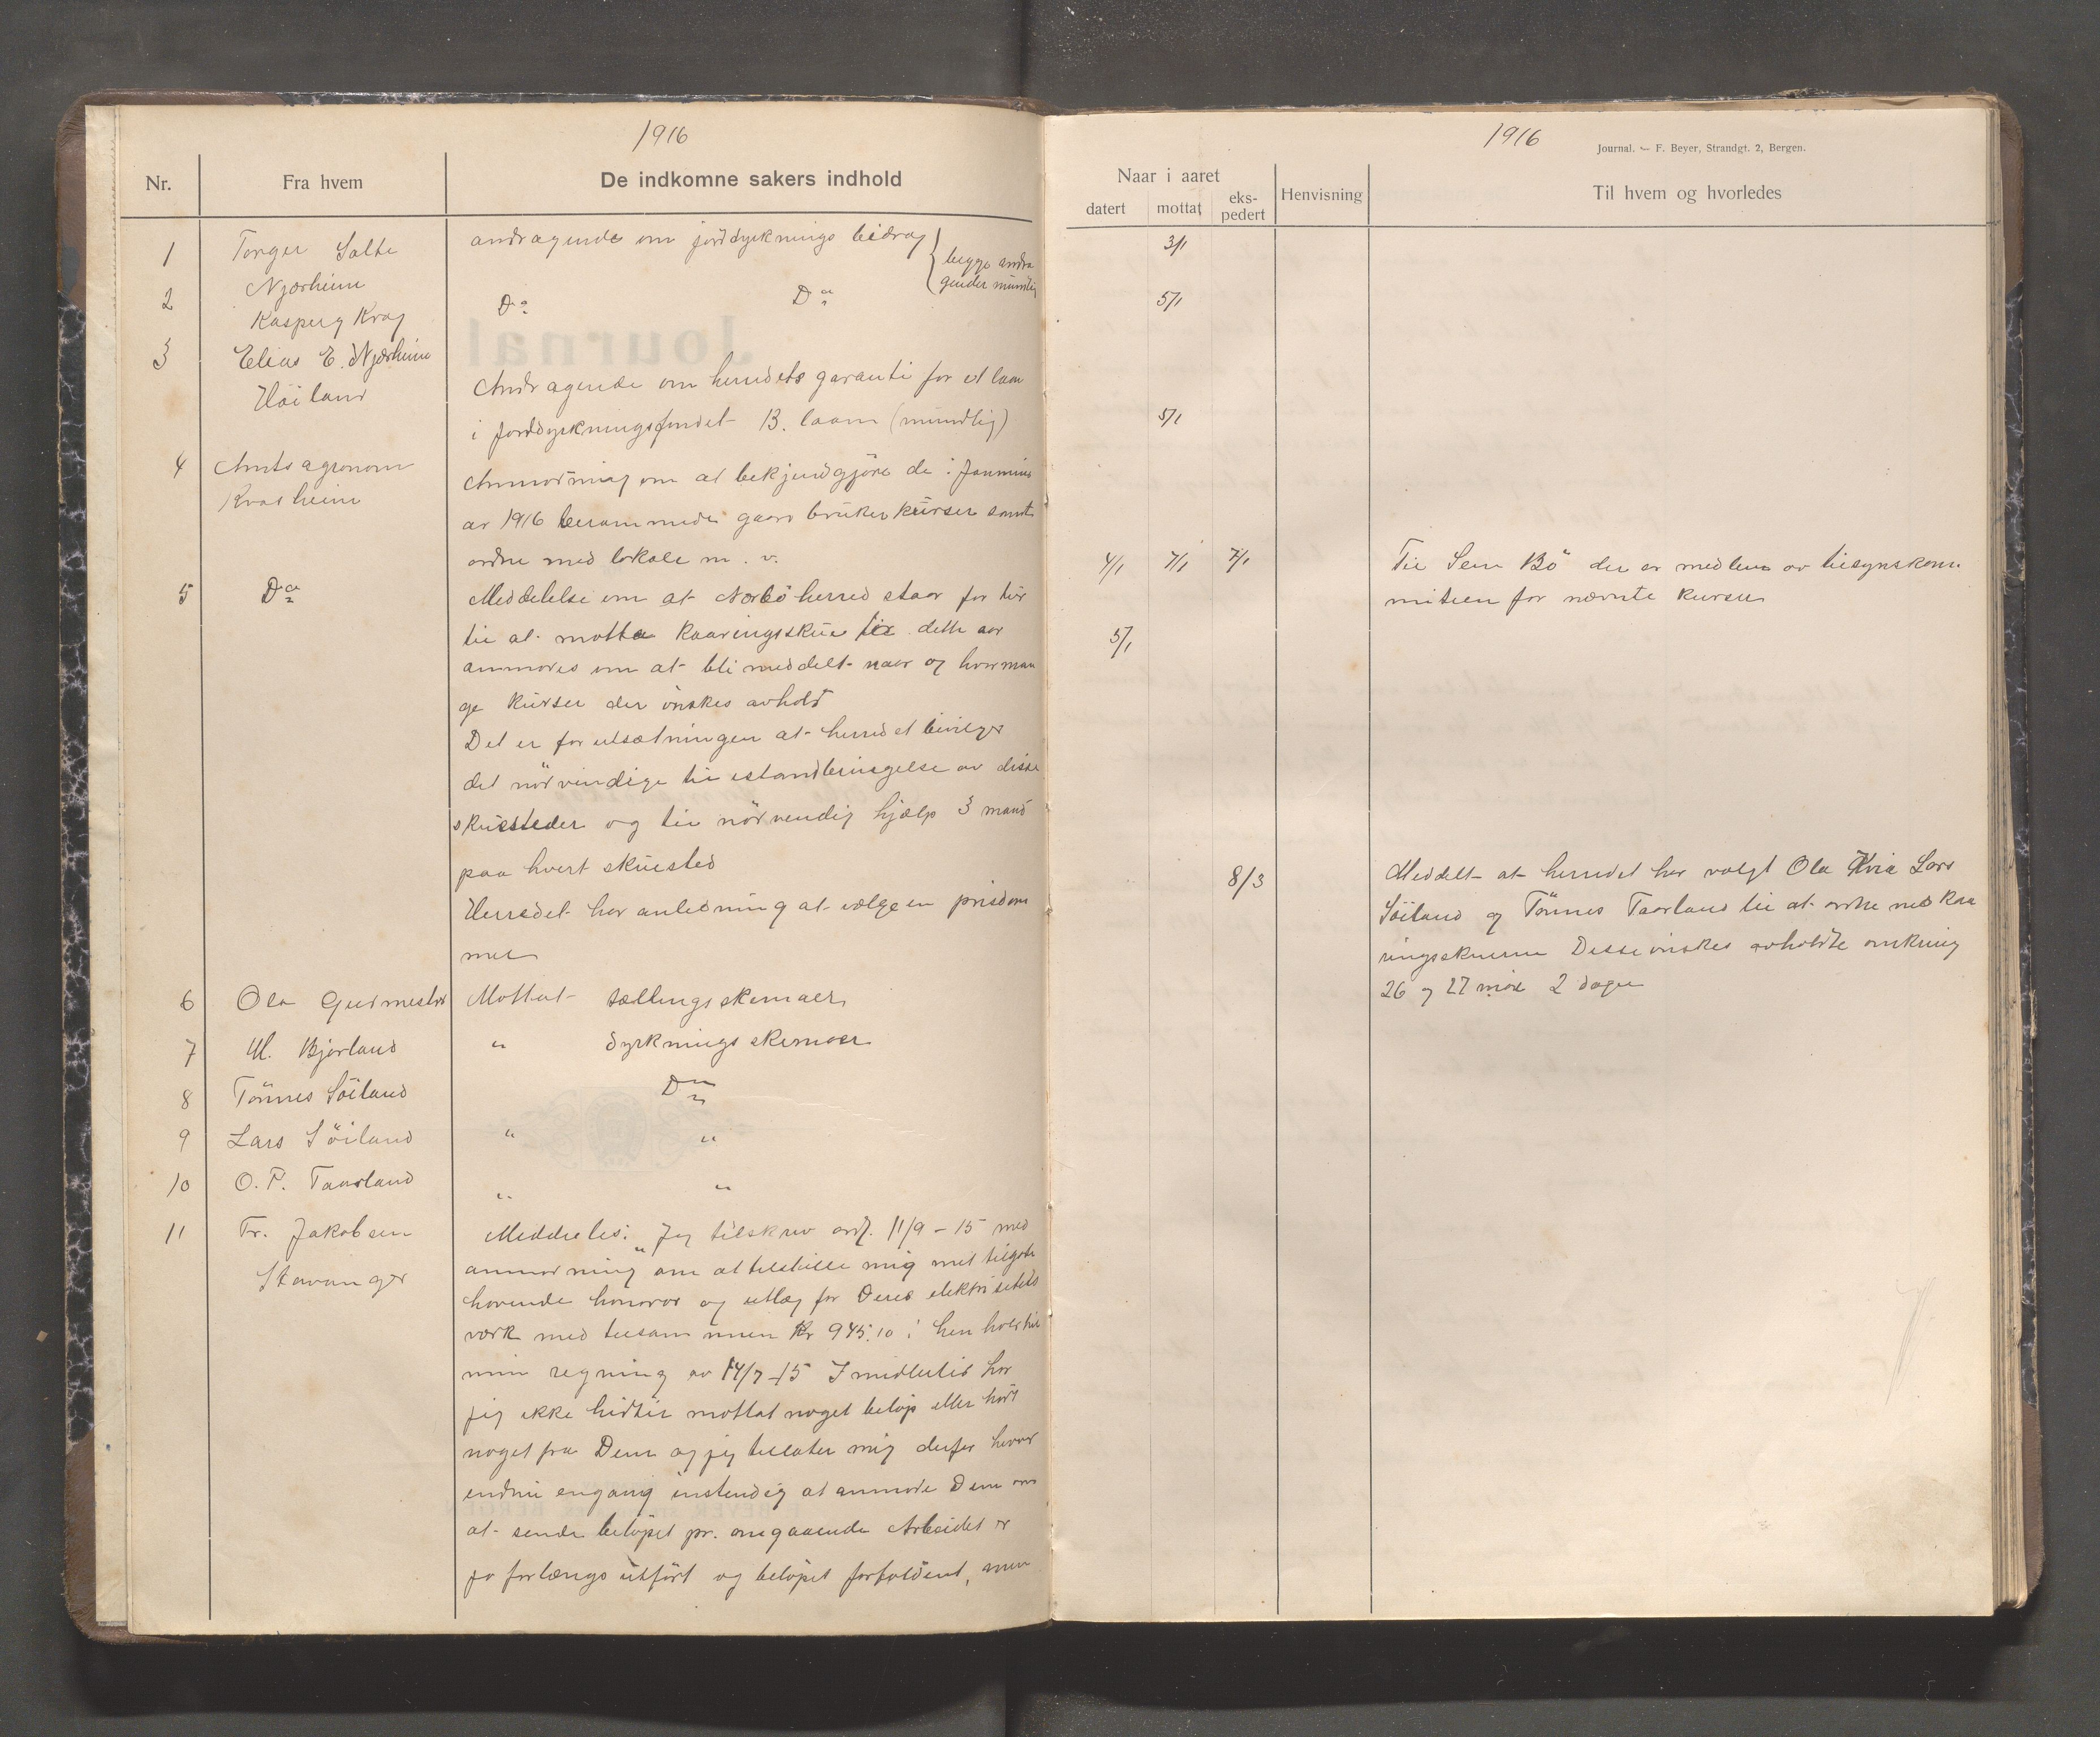 1916
Nr.
Fra hvem
De indkomne sakers indhold
1
Torger Salte
andragende om jorddyrknings bidrag
Njærheim
begge andra
gender mundtlig
2
Kasper Kvag
Do
Do
3
Elias E. Njærheim
Höiland
Andragende om herredets garanti for et laan
i Jorddyrkningsfondet B. laan (mundtlig)
4
Amtsagronom
Kvasheim
Anmodning om at bekjendgjöre de i Januar
ar 1916 berammede gaardbruker kurser samt
ordne med lokale m. v.
5
Do
Meddelelse om at Nærbö herred staar for tur
til at motta kaaringsskue i dette aar
anmodes om at bli meddelt naar og hvor man
ge kurser der önskes avholdt
Det er forutsætningen at herredet bevilger
det nödvendige til istandbringelse av disse
skuesteder og til nödvendig hjælp 3 mand
paa hvert skuested
Herredet har anledning at vælge en prisdom
mer
6
Ola Gudmestad
Mottat tællingsskemaer
7
M. Bjorland
" dyrkningsskemaer
8
Tönnes Söiland
Do
9
Lars Söiland
" "
10
O. P. Taarland
" "
11
Tr. Jakobsen
Stavanger
Meddeles: "Jeg tilskrev ordf. 11/9 - 15 med
anmodning om at tilstille mig mit tilgode
havende honorar og utlæg for Deres elektrisitets
værk med tilsammen Kr 945.10 i henhold til
min regning av 14/7-15 Imidlertid har
jeg ikke hidtil mottat noget belöp eller hört
noget fra Dem og jeg tillater mig derfor herved
endnu engang instendig at anmode Dem om
at sende belöpet pr. omgaaende Arbeidet er
jo forlængs utfört og belöpet forfaldent, men
1916
Journal. — F. Beyer, Strandgt. 2, Bergen.
Naar i aaret
datert
mottat
eks-
pedert
Henvisning
Til hvem og hvorledes
3/1
5/1
5/1
4/1 7/1 7/1
Til Sem Bö der er medlem av tilsynskom
miteen for nævnte kurser
5/1
8/3
Meddelt at herredet har valgt Ola Kvia Lars
Söiland og Tönnes Taarland til at ordne med kaa
ringsskuerne Disse önskes avholdte omkring
26 og 27 mai 2 dage